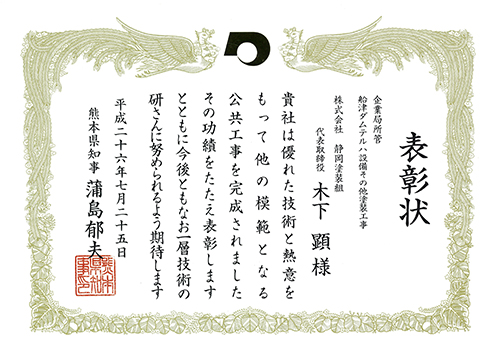 表彰状
企業局所管
船津ダムテルハ設備その他塗装工事
株式会社 静岡塗装組
代表取締役 木下 顕様
貴社は優れた技術と熱意を
もって他の模範となる
公共工事を完成されました
その功績をたたえ表彰します
とともに今後ともなお一層技術の
研さんに努められるよう期待します
平成二十六年七月二十五日
熊本県知事 蒲島郁夫
熊本県知事印